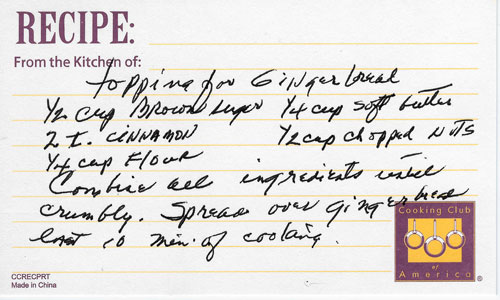 RECIPE:
From the Kitchen of:
Topping for Gingerbread
1/2 cup Brown sugar 1/4 cup soft butter
2 t. CINNAMON 1/2 cup chopped NUTS
1/4 cup Flour
Combine all ingredients until
crumbly. Spread over gingerbread
last 10 min. of cooking.
Cooking Club
of
America ®
CCRECPRT
Made in China